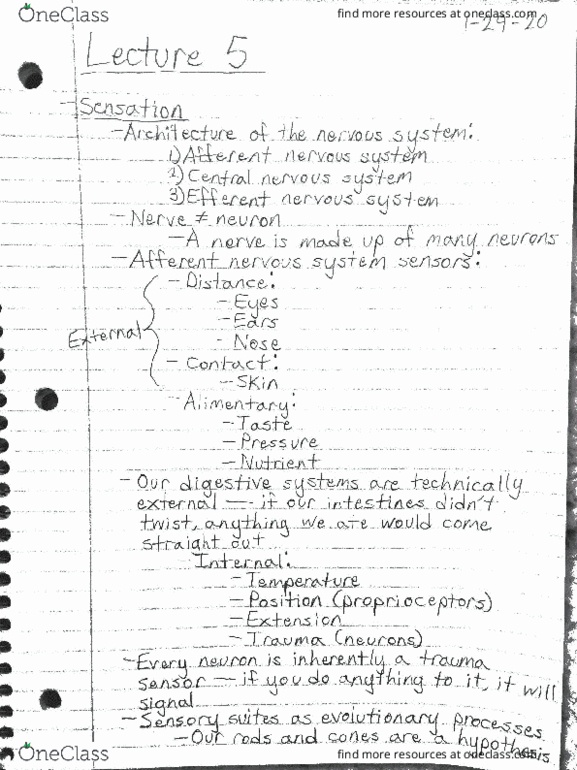 OneClass
find more resources at oneclass.com
1-29-20
Lecture 5
-Sensation
-Architecture of the nervous system:
1) Afferent nervous system
2) Central nervous system
3) Efferent nervous system
-Nerve ≠ neuron
-A nerve is made up of many neurons
-Afferent nervous system sensors:
-Distance:
-Eyes
-Ears
External
-Nose
-Contact:
-Skin
Alimentary:
-Taste
-Pressure
-Nutrient
-Our digestive systems are technically
external — if our intestines didn't
twist, anything we ate would come
straight out
Internal:
-Temperature
-Position (proprioceptors)
-Extension
-Trauma (neurons)
-Every neuron is inherently a trauma
sensor — if you do anything to it, it will
signal
-Sensory suites as evolutionary processes
-Our rods and cones are a hypothesis
OneClass
find more resources at oneclass.com